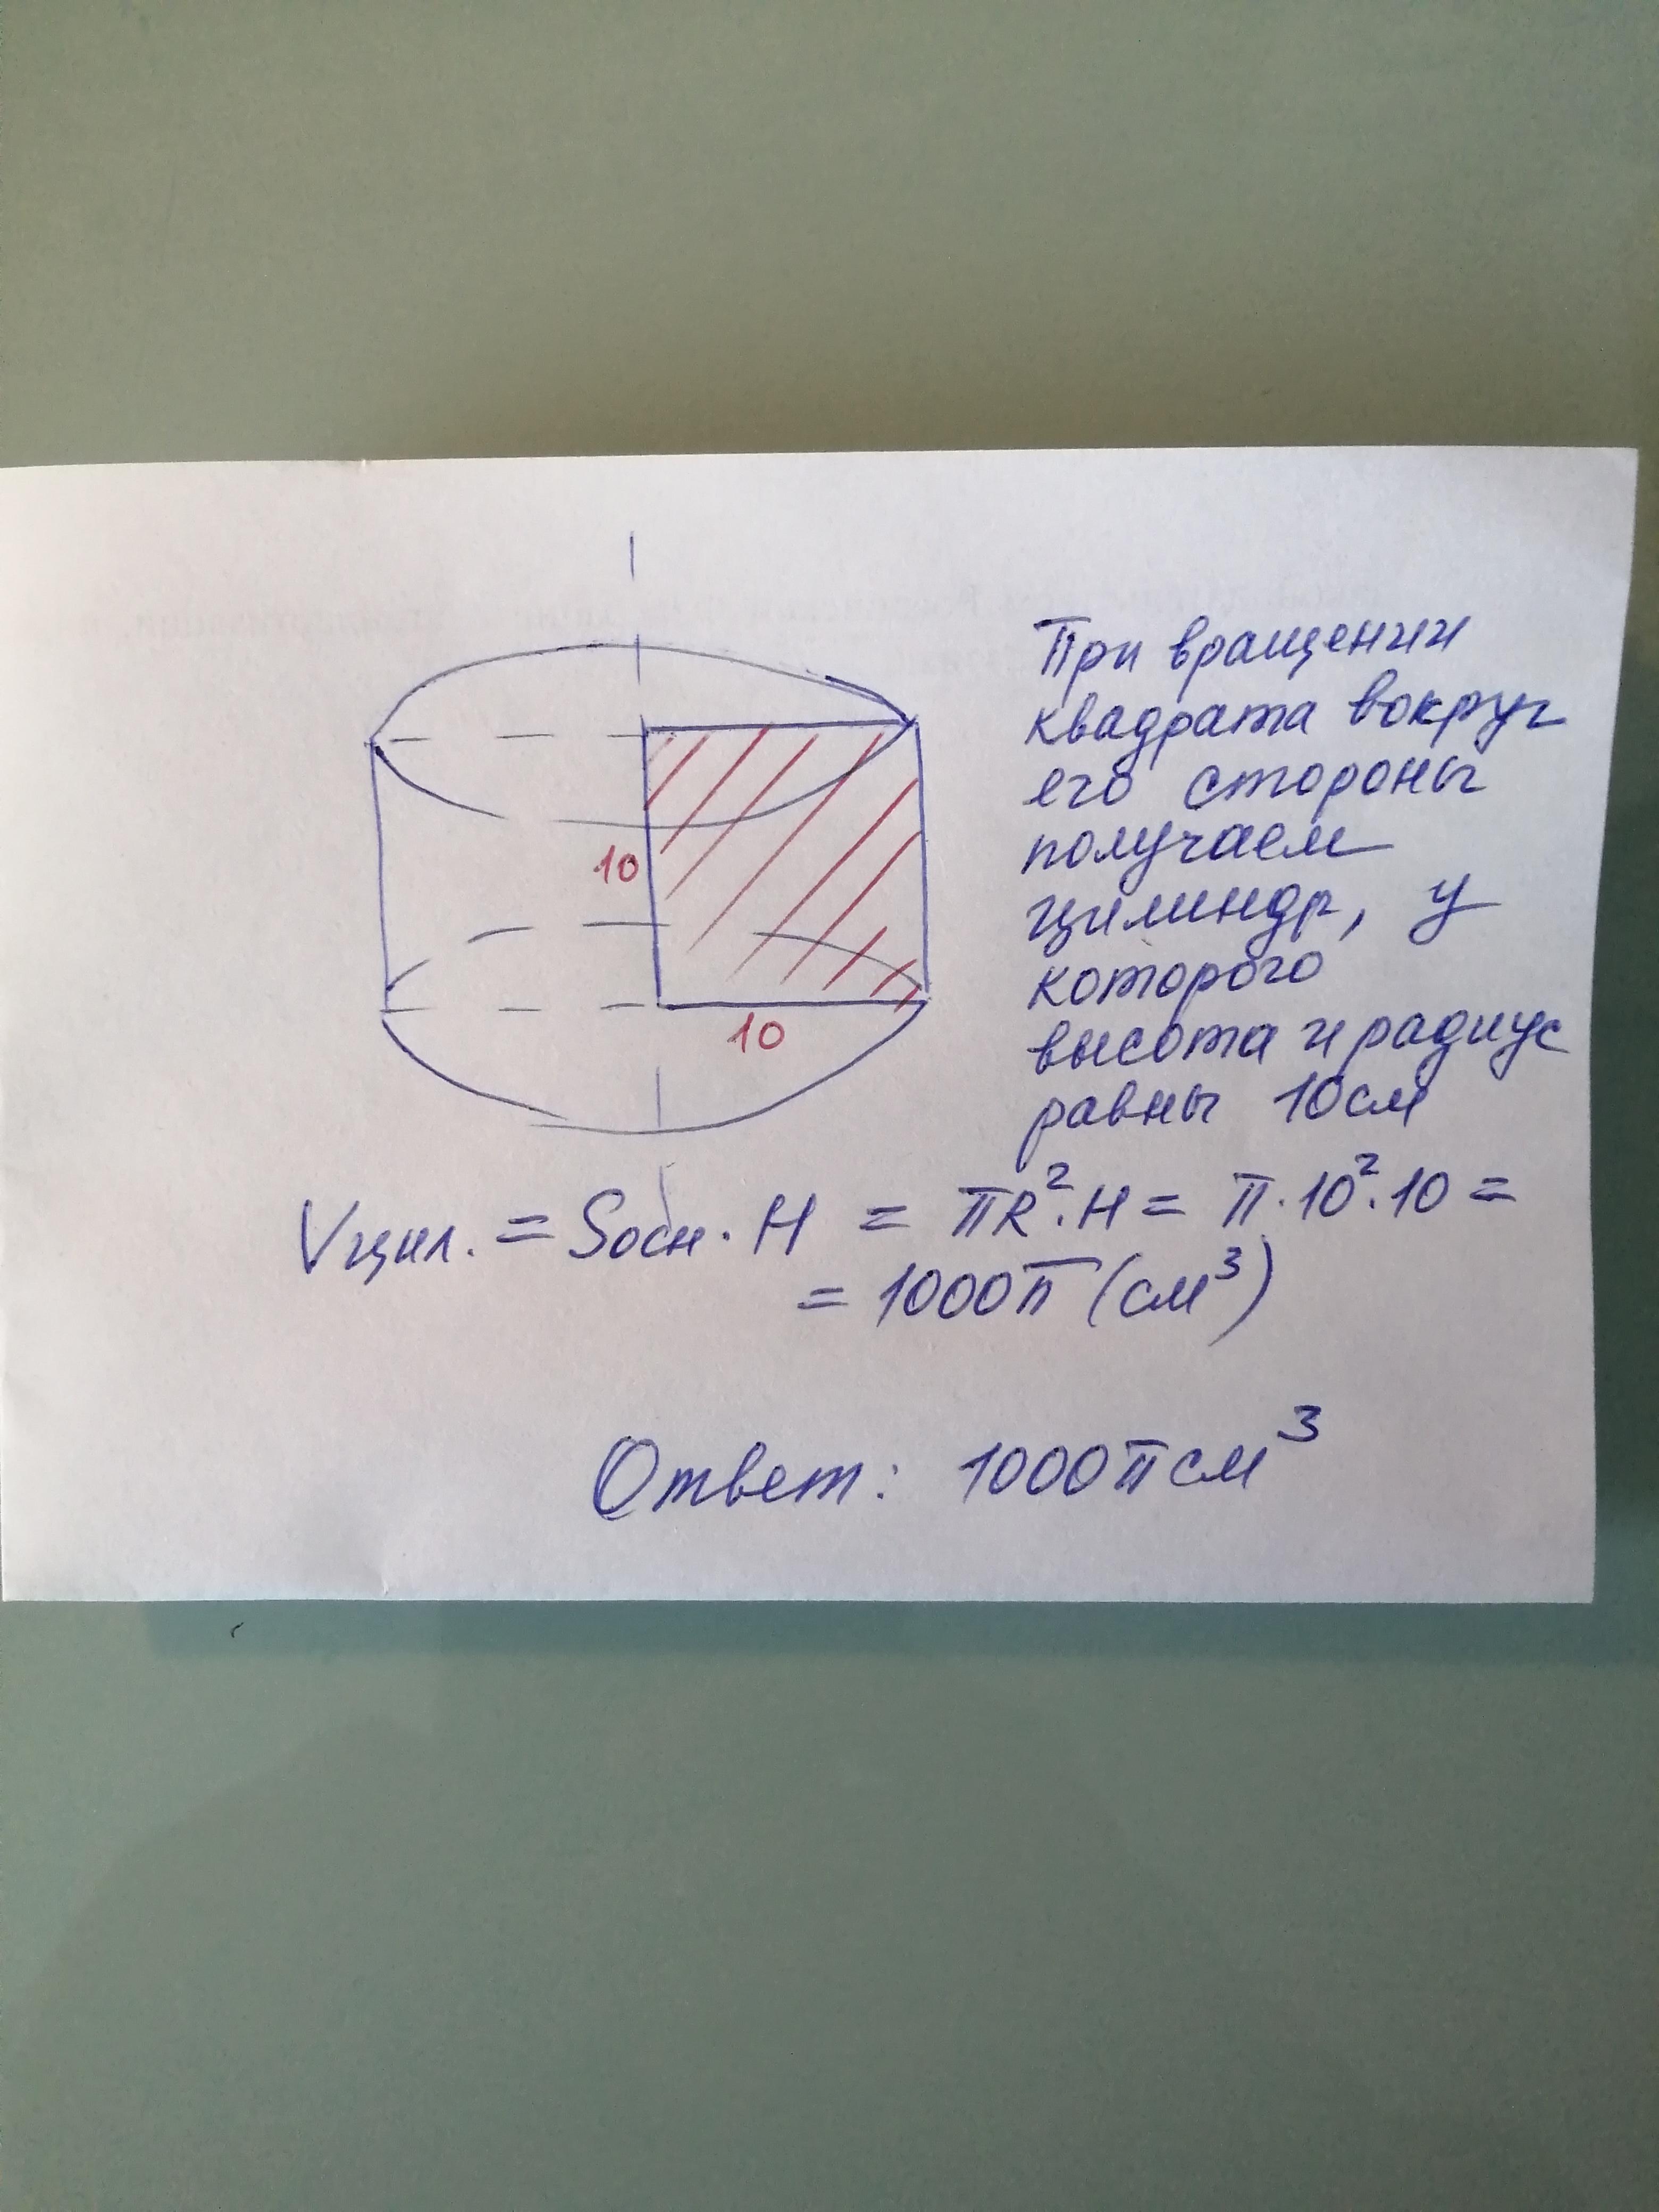 При вращении
квадрата вокруг
его стороны
получаем
цилиндр, у
которого
высота и радиус
равны 10см
10
10
Vцил. = Sосн. H = πR².H = π·10²·10 =
= 1000π (см³)
Ответ: 1000π см³